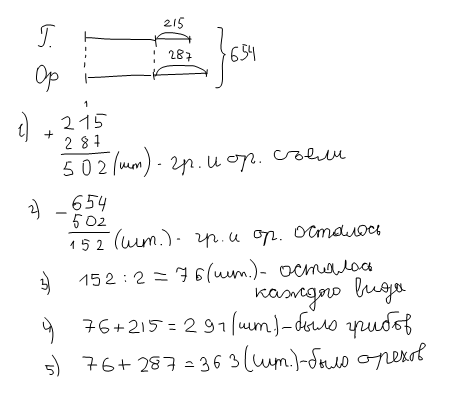 215
Г.
287
Ор
654
1) + 215
287
502 (шт) - гр. и ор. съели
2) - 654
502
152 (шт.) - гр. и ор. осталось
3) 152 : 2 = 76 (шт.) - осталось
каждого вида
4) 76 + 215 = 291 (шт.) - было грибов
5) 76 + 287 = 363 (шт.) - было орехов